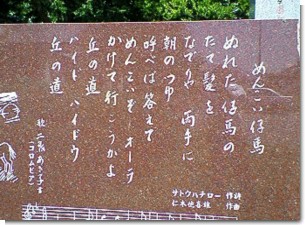 めんこい仔馬
ぬれた仔馬の
たて髪を
なでりゃ 両手に
朝のつゆ
呼べば答えて
めんこいぞ オーラ
かけて行こうかよ
丘の道
ハイド ハイドウ
丘の道
歌 二葉あき子
(コロムビア)
サトウハチロー 作詩
仁木他喜雄 作曲